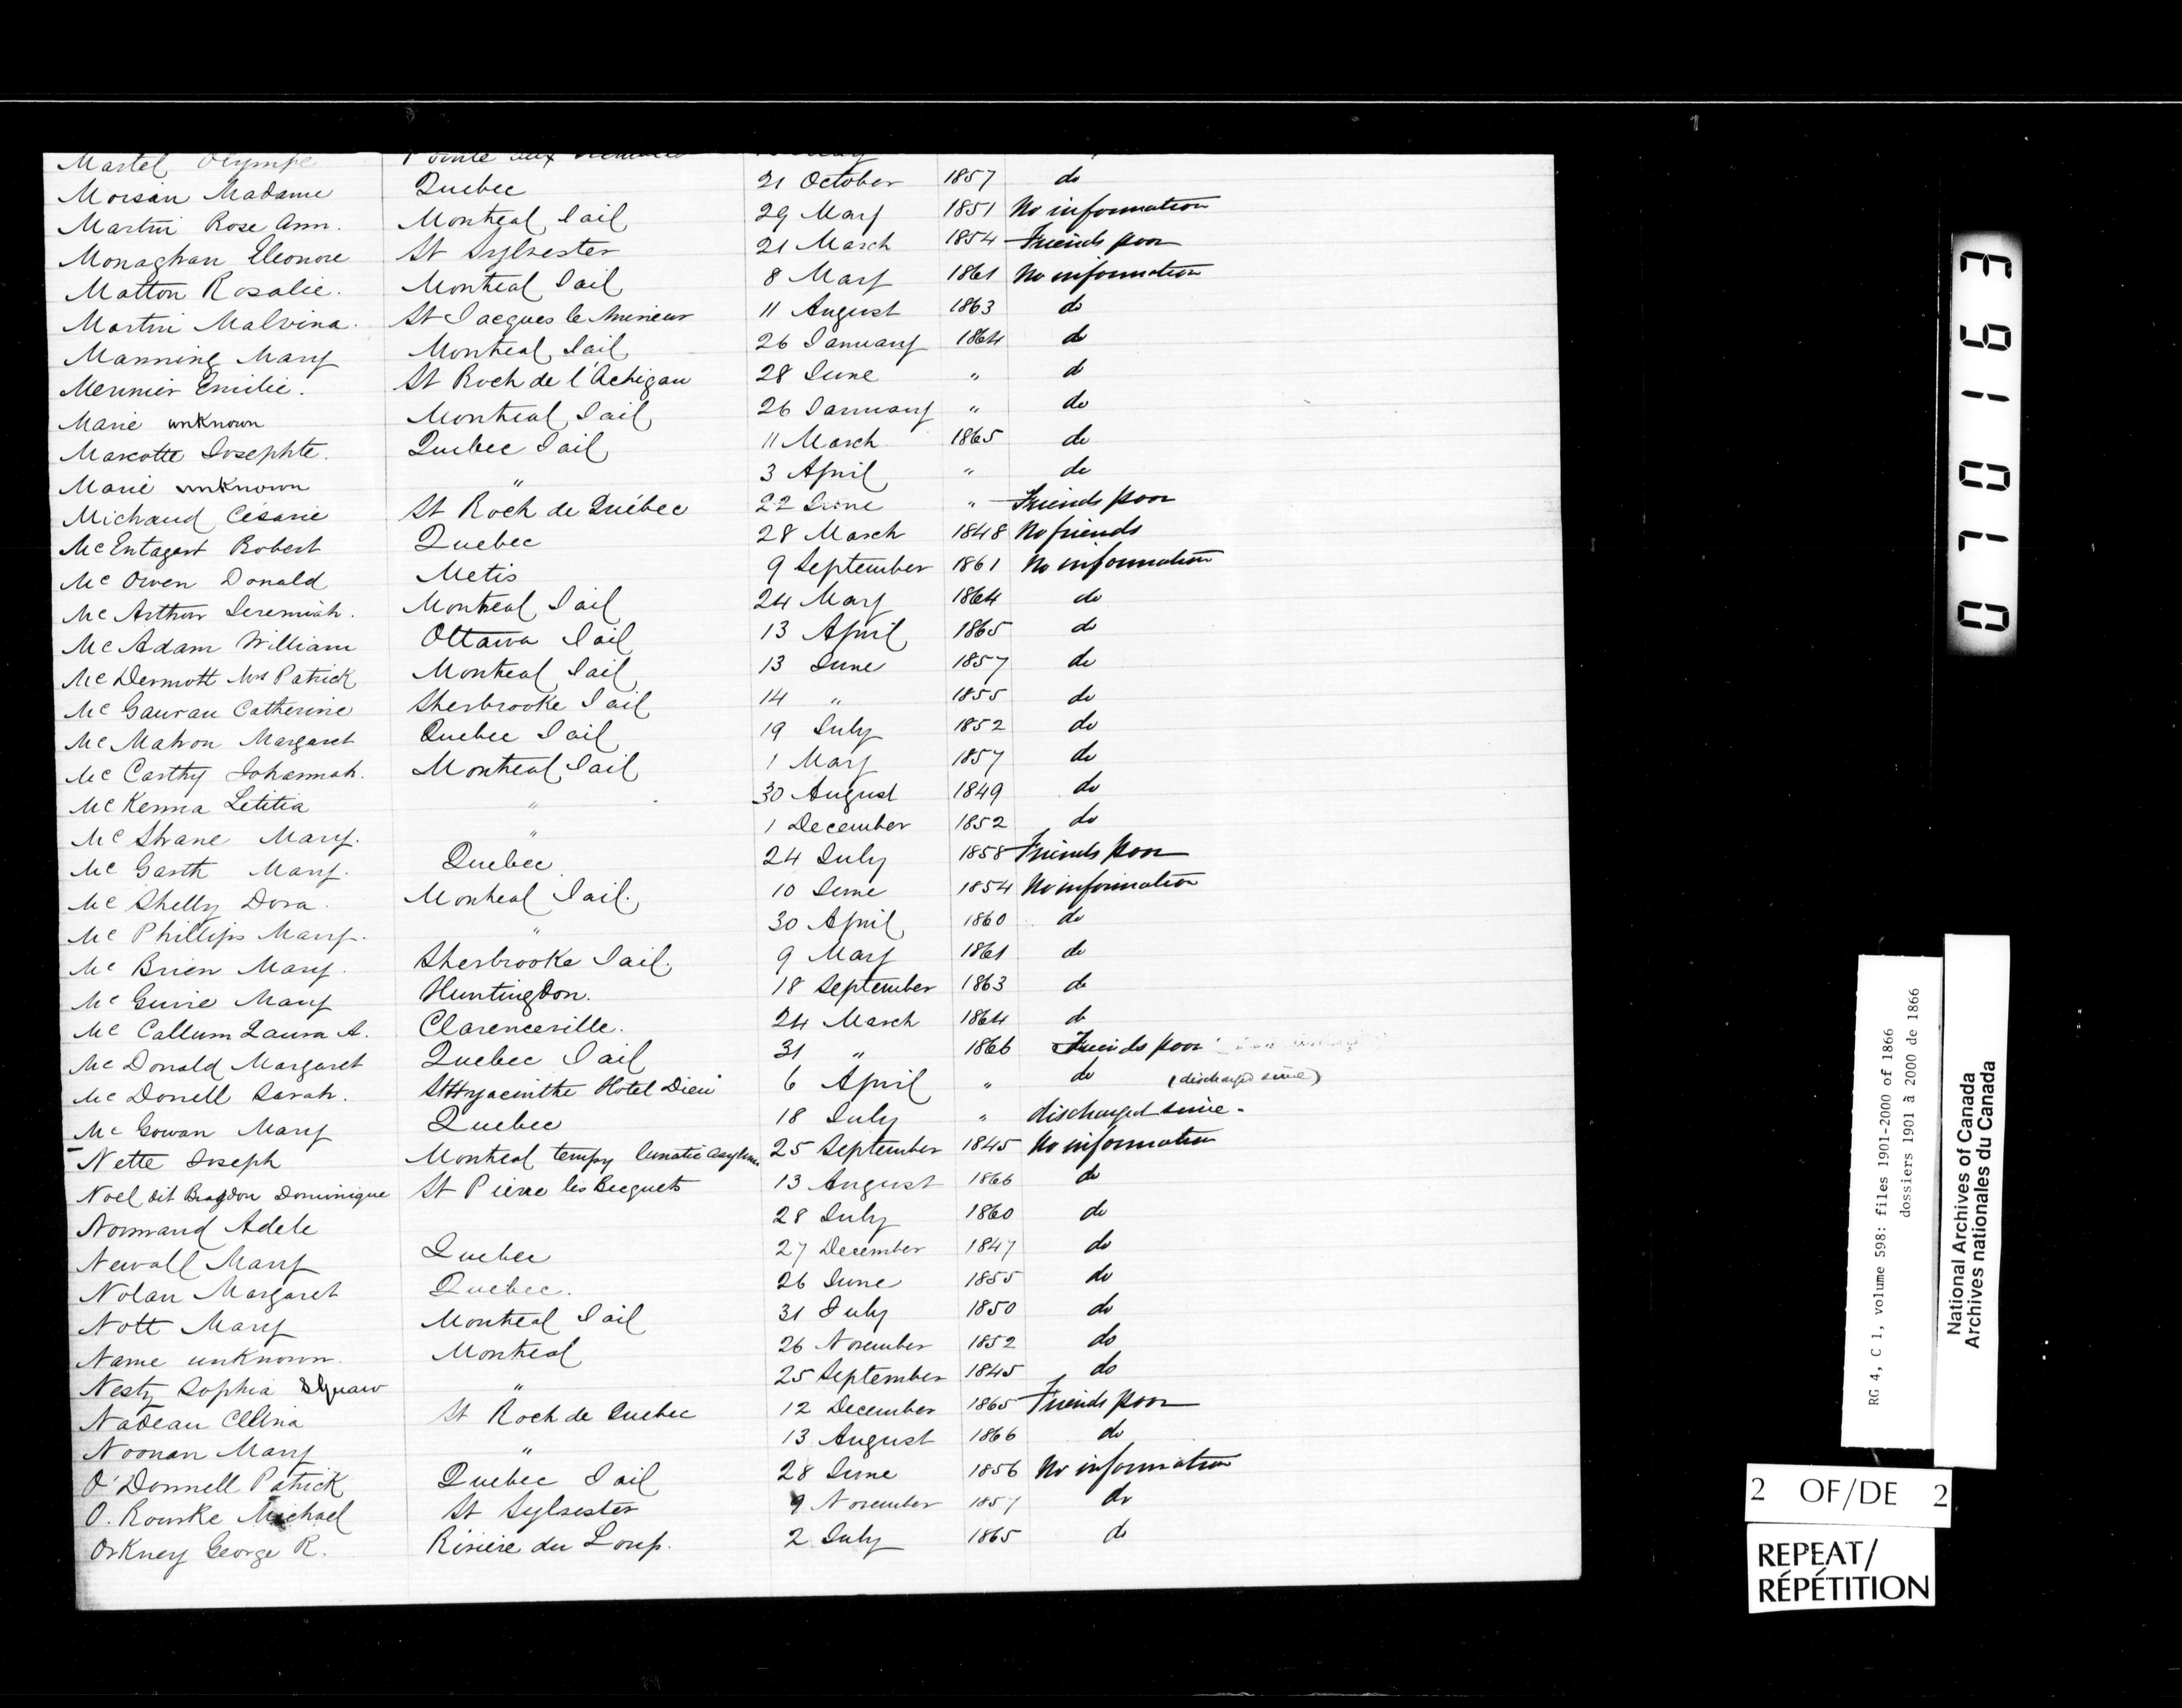 Martel Olympe Pointe aux
Moisan Madame Quebec 21 October 1857 do
Martin Rose Ann. Montreal Jail 29 May 1851 No information
Monaghan Eleonore St Sylvester 21 March 1854 Friends poor
Matton Rosalie. Montreal Jail 8 May 1861 No information
Martin Malvina. St Jacques le Mineur 11 August 1863 do
Manning Mary Montreal Jail 26 January 1864 do
Meunier Emilie. St Roch de l'Achigan 28 June " do
Marie unknown Montreal Jail 26 January " do
Marcotte Josephte. Quebec Jail 11 March 1865 do
Marie unknown " 3 April " do
Michaud Césarie St Roch de Québec 22 June " Friends poor
McEntagart Robert Quebec 28 March 1848 No friends
Mc Owen Donald Metis 9 September 1861 No information
Mc Arthur Jeremiah. Montreal Jail 24 May 1864 do
Mc Adam William Ottawa Jail 13 April 1865 do
Mc Dermott Mrs Patrick Montreal Jail 13 June 1857 do
Mc Gauran Catherine Sherbrooke Jail 14 " 1855 do
Mc Mahon Margaret Quebec Jail 19 July 1852 do
Mc Carthy Johannah. Montreal Jail 1 May 1857 do
McKenna Letitia " 30 August 1849 do
Mc Shane Mary. " 1 December 1852 do
Mc Garth Mary. Quebec 24 July 1858 Friends poor
Mc Shelly Dora. Montreal Jail. 10 June 1854 No information
Mc Phillips Mary. " 30 April 1860 do
Mc Brien Mary. Sherbrooke Jail. 9 May 1861 do
Mc Guire Mary Huntingdon. 18 September 1863 do
Mc Callum Laura A. Clarenceville. 24 March 1864 do
Mc Donald Margaret Quebec Jail 31 " 1866 Friends poor
Mc Donell Sarah. St Hyacinthe Hotel Dieu 6 April " do (discharged since)
Mc Gowan Mary Quebec 18 July " discharged since -
Nette Joseph Montreal tempy lunatic asylum 25 September 1845 No information
Noel dit Bragdon Dominique St Pierre les Becquets 13 August 1866 do
Normand Adele 28 July 1860 do
Newall Mary Quebec 27 December 1847 do
Nolan Margaret Quebec. 26 June 1855 do
Nott Mary Montreal Jail 31 July 1850 do
Name unknown. Montreal 26 November 1852 do
Nesty Sophia Squaw " 25 September 1845 do
Nadeau Céllina St Roch de Quebec 12 December 1865 Friends poor
Noonan Mary " 13 August 1866 do
O'Donnell Patrick Quebec Jail 28 June 1856 No information
O. Rourke Michael St Sylvester 9 November 1857 do
Orkney George R. Rivière du Loup. 2 July 1865 do
070163
RG 4, C 1, volume 598: files 1901-2000 of 1866
dossiers 1901 à 2000 de 1866
National Archives of Canada
Archives nationales du Canada
2 OF/DE 2
REPEAT/
RÉPÉTITION